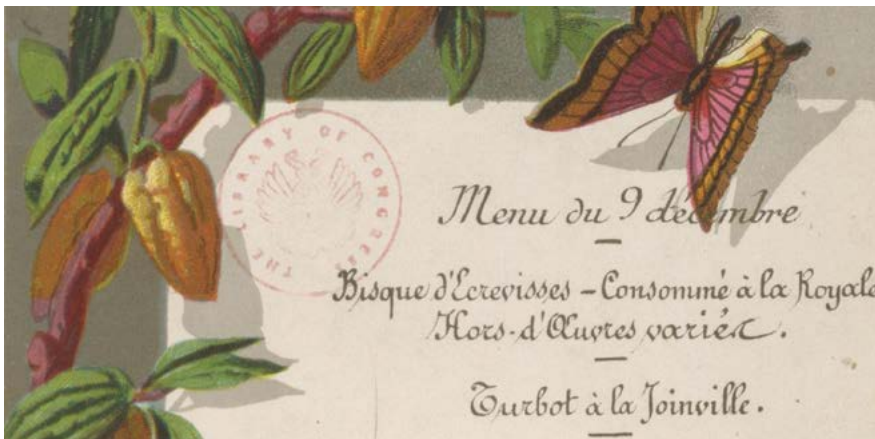 THE LIBRARY OF CONGRESS
Menu du 9 décembre
Bisque d'Ecrevisses – Consommé à la Royale
Hors-d'Œuvres variés.
Turbot à la Joinville.